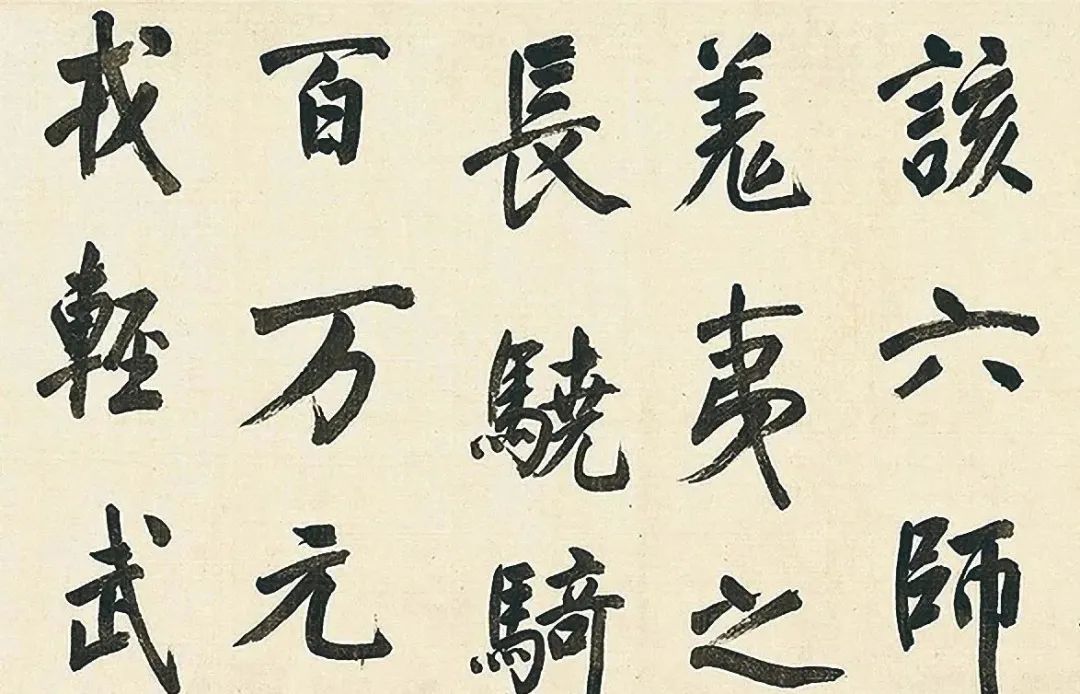 該六師
羗夷之
長驍騎
百万元
戎輕武